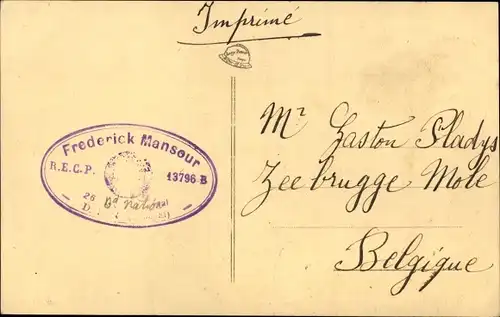 Imprimé
Frederick Mansour
R.E.C.P. 13796 B
26
D
Bd National
Mr Gaston Pladys
Zeebrugge Mole
Belgique